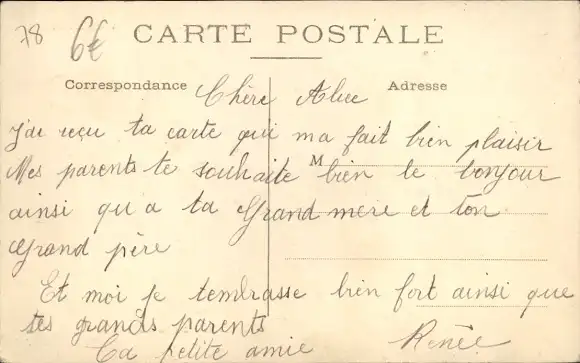 78 6€
CARTE POSTALE
Correspondance
Adresse
Chère Alice
J'ai reçu ta carte qui ma fait bien plaisir
M
Mes parents te souhaite bien le bonjour
ainsi qu'a ta Grand mere et ton
Grand père
Et moi je tembrasse bien fort ainsi que
tes grands parents
Ta petite amie Renée